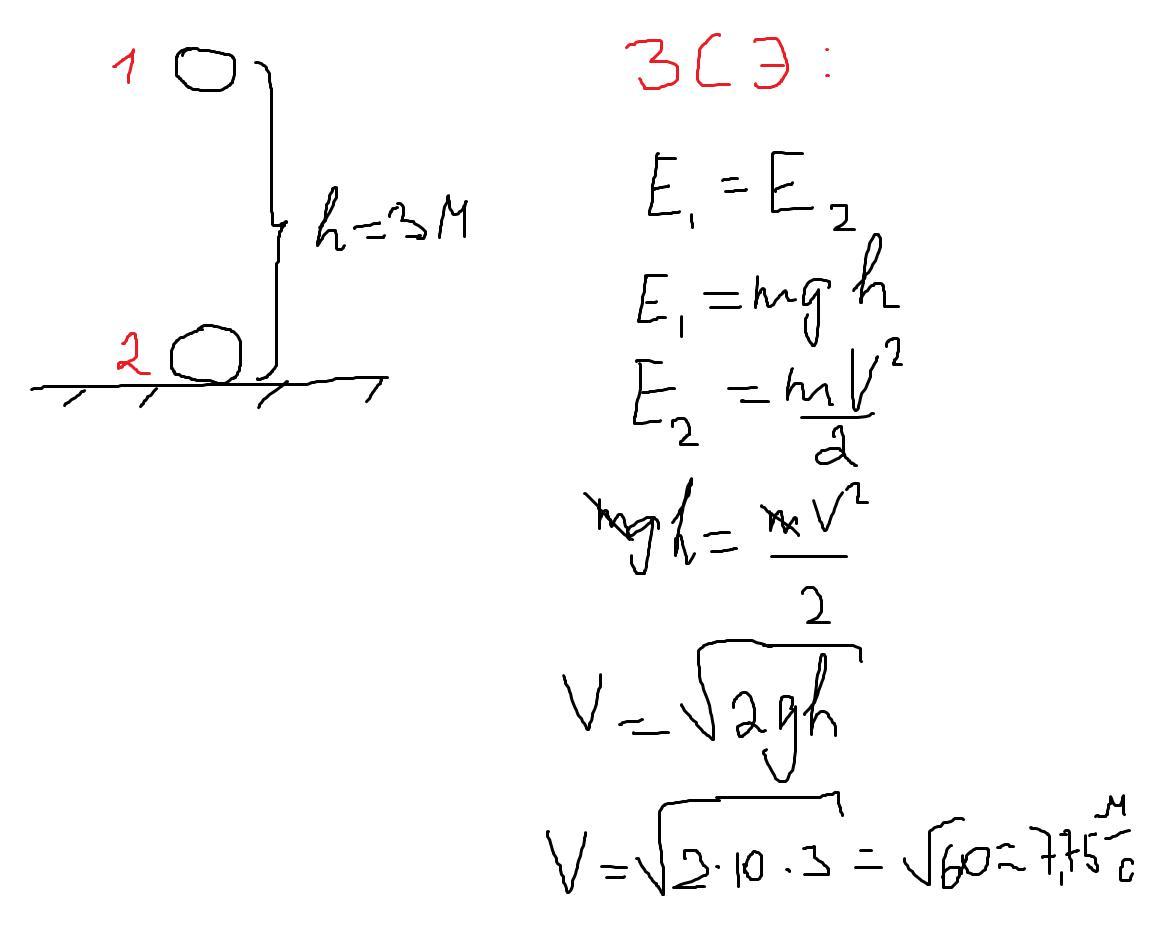 1
h=3м
2
ЗСЭ:
E₁ = E₂
E₁ = mgh
E₂ = mV²/2
mgh = mV²/2
V = √2gh
V = √2·10·3 = √60 ≈ 7,75 м/с